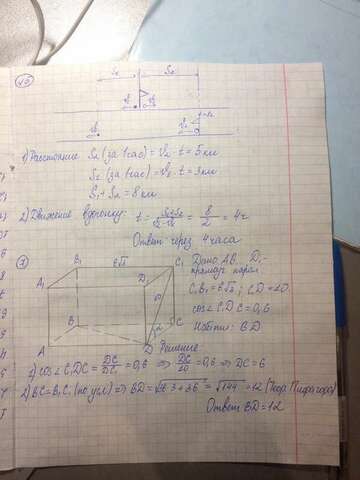 S₁ S₂
1) Расстояние S₁ (за 1 час) = V₁ · t = 5 км
S₂ (за 1 час) = V₂ · t = 3 км
S₁ + S₂ = 8 км
2) Движение вдогонку: t = = 8/2 = 4ч
Ответ через 4 часа
7
B₁ 6√3 C₁
A₁ D₁
B C
A D
Дано AB D₁
C₁B₁ = 6√3; C₁D = 10
cos∠C₁DC = 0,6
Найти: BD
Решение
1) cos∠C₁DC = DC/DC₁ = 0,6 ⇒ DC/10 = 0,6 ⇒ DC = 6
2) BC = B₁C₁ (по усл) ⇒ BD = √36·3+36 = √144 = 12 (Теор. Пифагора)
Ответ BD = 12